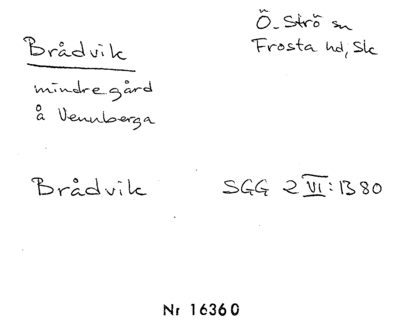 Brådvik
Ö. Strö sn
Frosta hd, Sk
mindre gård
å Vennberga
Brådvik SGG 2 VI:1380
Nr 16360